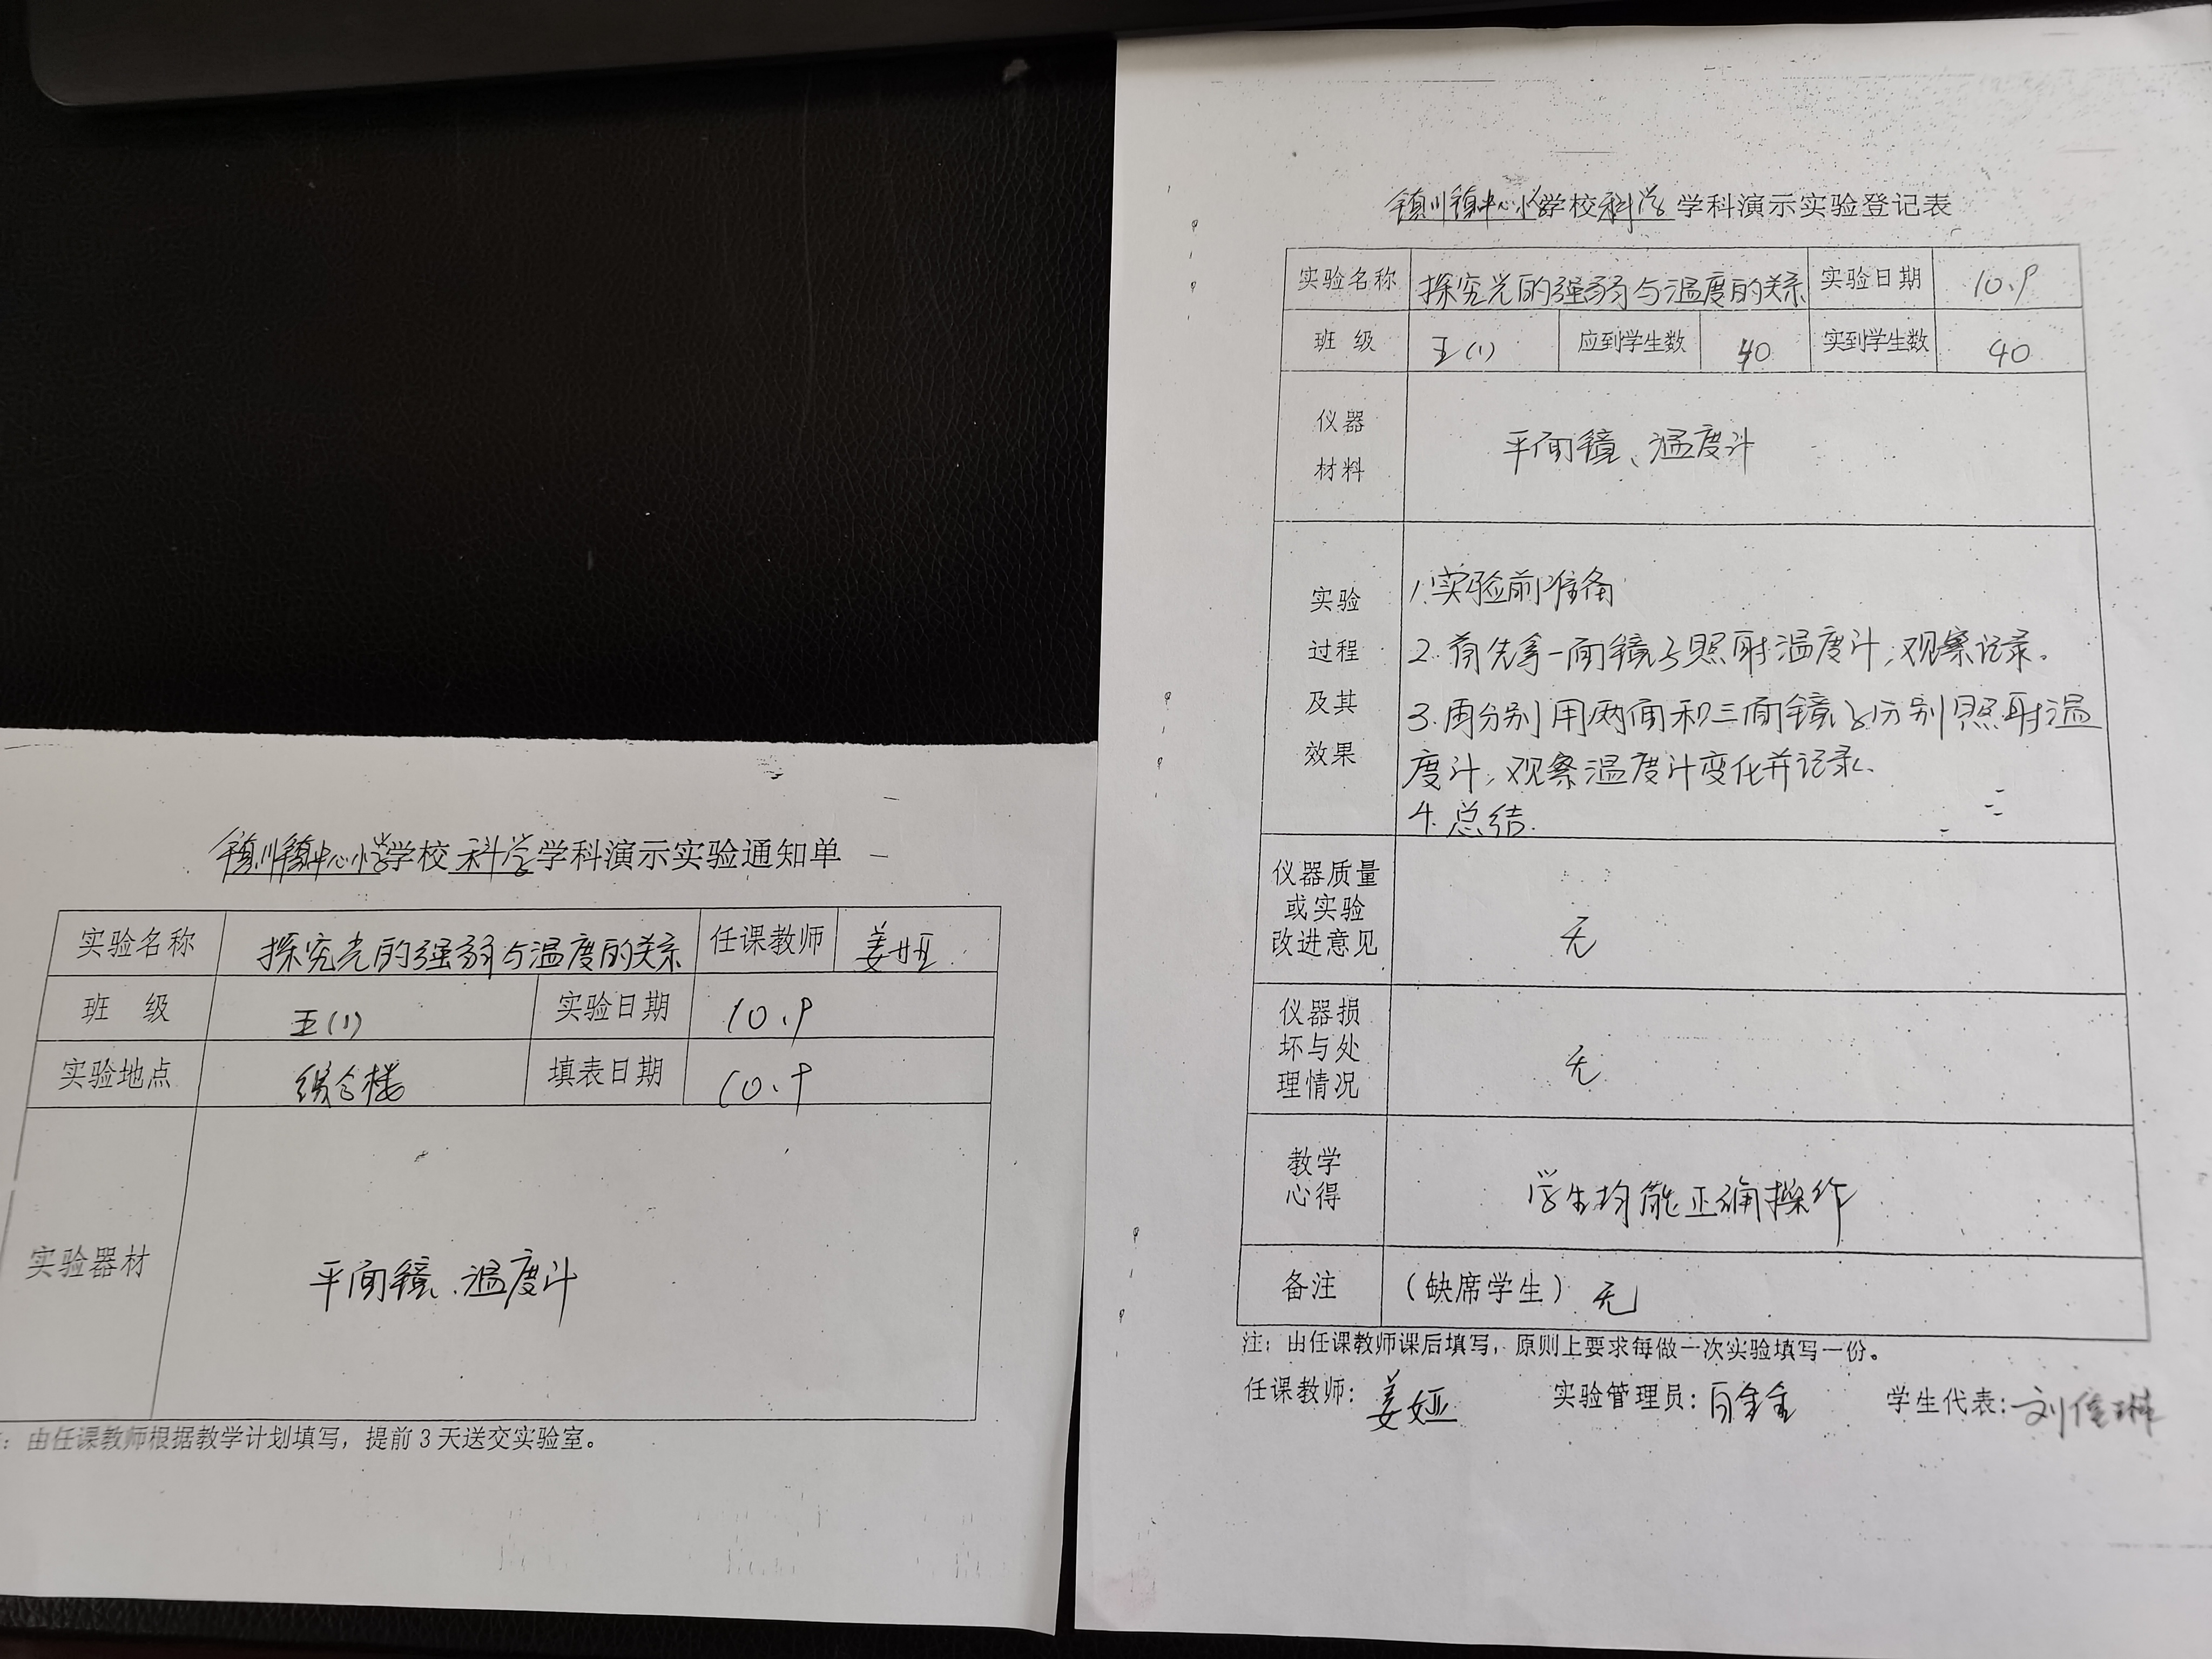 镇川镇中心小学学校科学学科演示实验通知单
实验名称 探究光的强弱与温度的关系 任课教师 姜娅
班 级 五(1) 实验日期 10.9
实验地点 综合楼 填表日期 10.9
实验器材 平面镜、温度计
：由任课教师根据教学计划填写，提前3天送交实验室。
镇川镇中心小学校科学学科演示实验登记表
实验名称 探究光的强弱与温度的关系 实验日期 10.9
班 级 五(1) 应到学生数 40 实到学生数 40
仪器
材料
平面镜、温度计
实验
过程
及其
效果
1.实验前准备
2.首先拿一面镜子照射温度计,观察记录。
3.再分别用两面和三面镜子分别照射温
度计,观察温度计变化并记录.
4.总结.
仪器质量
或实验
改进意见
无
仪器损
坏与处
理情况
无
教学
心得
学生均能正确操作
备注 （缺席学生） 无
注：由任课教师课后填写，原则上要求每做一次实验填写一份。
任课教师：姜娅 实验管理员： 学生代表：